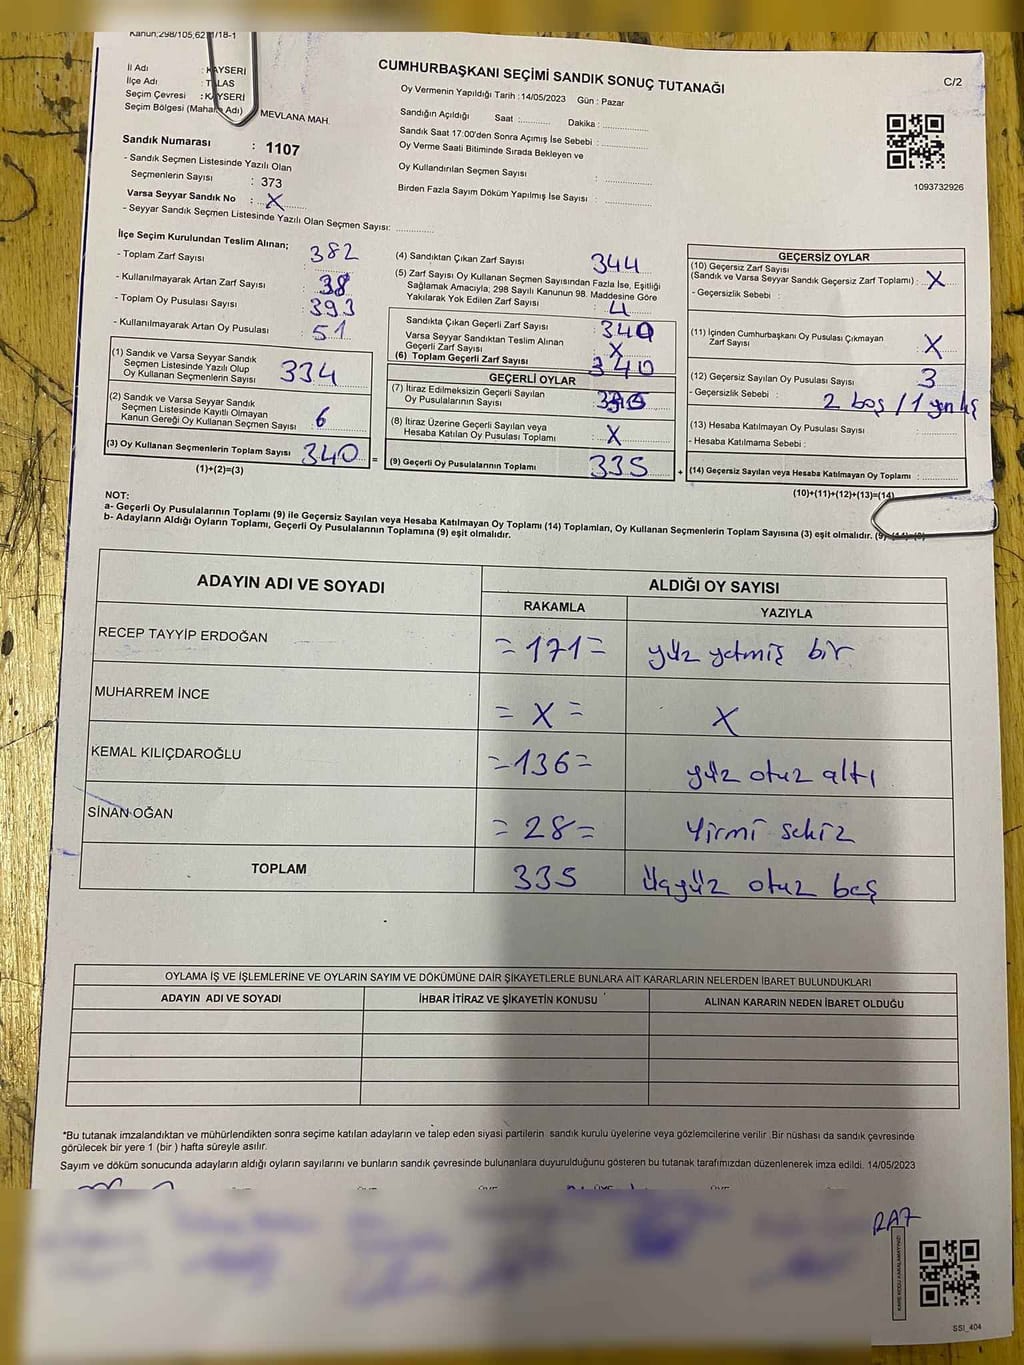 Kanun;298/105,62 /18-1
İl Adı : KAYSERİ
İlçe Adı : TALAS
Seçim Çevresi : KAYSERİ
Seçim Bölgesi (Mahalle Adı) MEVLANA MAH.
CUMHURBAŞKANI SEÇİMİ SANDIK SONUÇ TUTANAĞI
C/2
Oy Vermenin Yapıldığı Tarih : 14/05/2023 Gün : Pazar
Sandığın Açıldığı Saat :........... Dakika : ....................
Sandık Saat 17:00'den Sonra Açımış İse Sebebi : ....................
Oy Verme Saati Bitiminde Sırada Bekleyen ve
Oy Kullandırılan Seçmen Sayısı : ....................
Birden Fazla Sayım Döküm Yapılmış İse Sayısı : ....................
1093732926
Sandık Numarası : 1107
- Sandık Seçmen Listesinde Yazılı Olan
Seçmenlerin Sayısı : 373
Varsa Seyyar Sandık No : X
- Seyyar Sandık Seçmen Listesinde Yazılı Olan Seçmen Sayısı: ................
İlçe Seçim Kurulundan Teslim Alınan;
- Toplam Zarf Sayısı : 382
- Kullanılmayarak Artan Zarf Sayısı : 38
- Toplam Oy Pusulası Sayısı : 393
- Kullanılmayarak Artan Oy Pusulası : 51
(1) Sandık ve Varsa Seyyar Sandık
Seçmen Listesinde Yazılı Olup
Oy Kullanan Seçmenlerin Sayısı : 334
(2) Sandık ve Varsa Seyyar Sandık
Seçmen Listesinde Kayıtlı Olmayan
Kanun Gereği Oy Kullanan Seçmen Sayısı : 6
(3) Oy Kullanan Seçmenlerin Toplam Sayısı : 340 =
(1)+(2)=(3)
(4) Sandıktan Çıkan Zarf Sayısı 344
(5) Zarf Sayısı Oy Kullanan Seçmen Sayısından Fazla İse, Eşitliği
Sağlamak Amacıyla; 298 Sayılı Kanunun 98. Maddesine Göre
Yakılarak Yok Edilen Zarf Sayısı : 4
Sandıkta Çıkan Geçerli Zarf Sayısı 340
Varsa Seyyar Sandıktan Teslim Alınan
Geçerli Zarf Sayısı : X
(6) Toplam Geçerli Zarf Sayısı : 340
GEÇERLİ OYLAR
(7) İtiraz Edilmeksizin Geçerli Sayılan
Oy Pusulalarının Sayısı :
(8) İtiraz Üzerine Geçerli Sayılan veya
Hesaba Katılan Oy Pusulası Toplamı : X
(9) Geçerli Oy Pusulalarının Toplamı : 335 +
GEÇERSİZ OYLAR
(10) Geçersiz Zarf Sayısı
(Sandık ve Varsa Seyyar Sandık Geçersiz Zarf Toplamı) : X
- Geçersizlik Sebebi :
(11) İçinden Cumhurbaşkanı Oy Pusulası Çıkmayan
Zarf Sayısı : X
(12) Geçersiz Sayılan Oy Pusulası Sayısı : 3
- Geçersizlik Sebebi : 2 boş / 1 yanlış
(13) Hesaba Katılmayan Oy Pusulası Sayısı :
- Hesaba Katılmama Sebebi :
(14) Geçersiz Sayılan veya Hesaba Katılmayan Oy Toplamı : ............
(10)+(11)+(12)+(13)=(14)
NOT:
a- Geçerli Oy Pusulalarının Toplamı (9) ile Geçersiz Sayılan veya Hesaba Katılmayan Oy Toplamı (14) Toplamları, Oy Kullanan Seçmenlerin Toplam Sayısına (3) eşit olmalıdır.
b- Adayların Aldığı Oyların Toplamı, Geçerli Oy Pusulalarının Toplamına (9) eşit olmalıdır.
ADAYIN ADI VE SOYADI ALDIĞI OY SAYISI
RAKAMLA YAZIYLA
RECEP TAYYİP ERDOĞAN = 171 = yüz yetmiş bir
MUHARREM İNCE = X = X
KEMAL KILIÇDAROĞLU = 136 = yüz otuz altı
SİNAN OĞAN = 28 = Yirmi sekiz
TOPLAM 335 Üçyüz otuz beş
OYLAMA İŞ VE İŞLEMLERİNE VE OYLARIN SAYIM VE DÖKÜMÜNE DAİR ŞİKAYETLERLE BUNLARA AİT KARARLARIN NELERDEN İBARET BULUNDUKLARI
ADAYIN ADI VE SOYADI İHBAR İTİRAZ VE ŞİKAYETİN KONUSU ALINAN KARARIN NEDEN İBARET OLDUĞU
*Bu tutanak imzalandıktan ve mühürlendikten sonra seçime katılan adayların ve talep eden siyasi partilerin sandık kurulu üyelerine veya gözlemcilerine verilir. Bir nüshası da sandık çevresinde
görülecek bir yere 1 (bir ) hafta süreyle asılır.
Sayım ve döküm sonucunda adayların aldığı oyların sayılarını ve bunların sandık çevresinde bulunanlara duyurulduğunu gösteren bu tutanak tarafımızdan düzenlenerek imza edildi. 14/05/2023
KARE KODU KARALAMAYINIZ!
SSİ_404